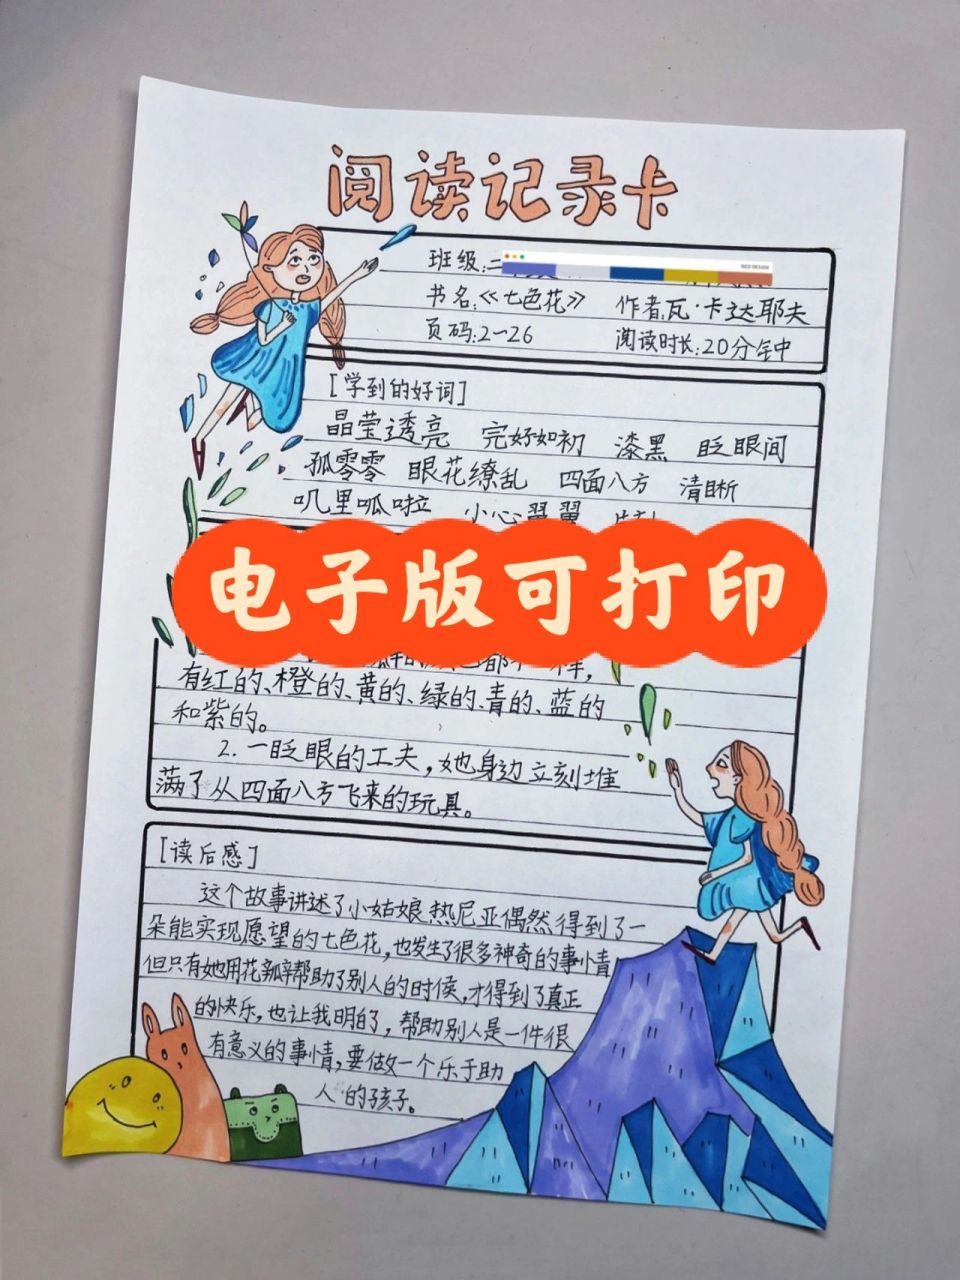 阅读记录卡
班级:二
RED DESIGN
书名:《七色花》 作者:瓦·卡达耶夫
页码:2-26 阅读时长:20分钟
[学到的好词]
晶莹透亮 完好如初 漆黑 眨眼间
孤零零 眼花缭乱 四面八方 清晰
叽里呱啦 小心翼翼
电子版可打印
都不一样,
有红的、橙的、黄的、绿的、青的、蓝的
和紫的。
2. 一眨眼的工夫,她身边立刻堆
满了从四面八方飞来的玩具。
[读后感]
这个故事讲述了小姑娘热尼亚偶然得到了一
朵能实现愿望的七色花,也发生了很多神奇的事情
但只有她用花瓣帮助了别人的时候,才得到了真正
的快乐,也让我明白了,帮助别人是一件很
有意义的事情,要做一个乐于助
人的孩子。